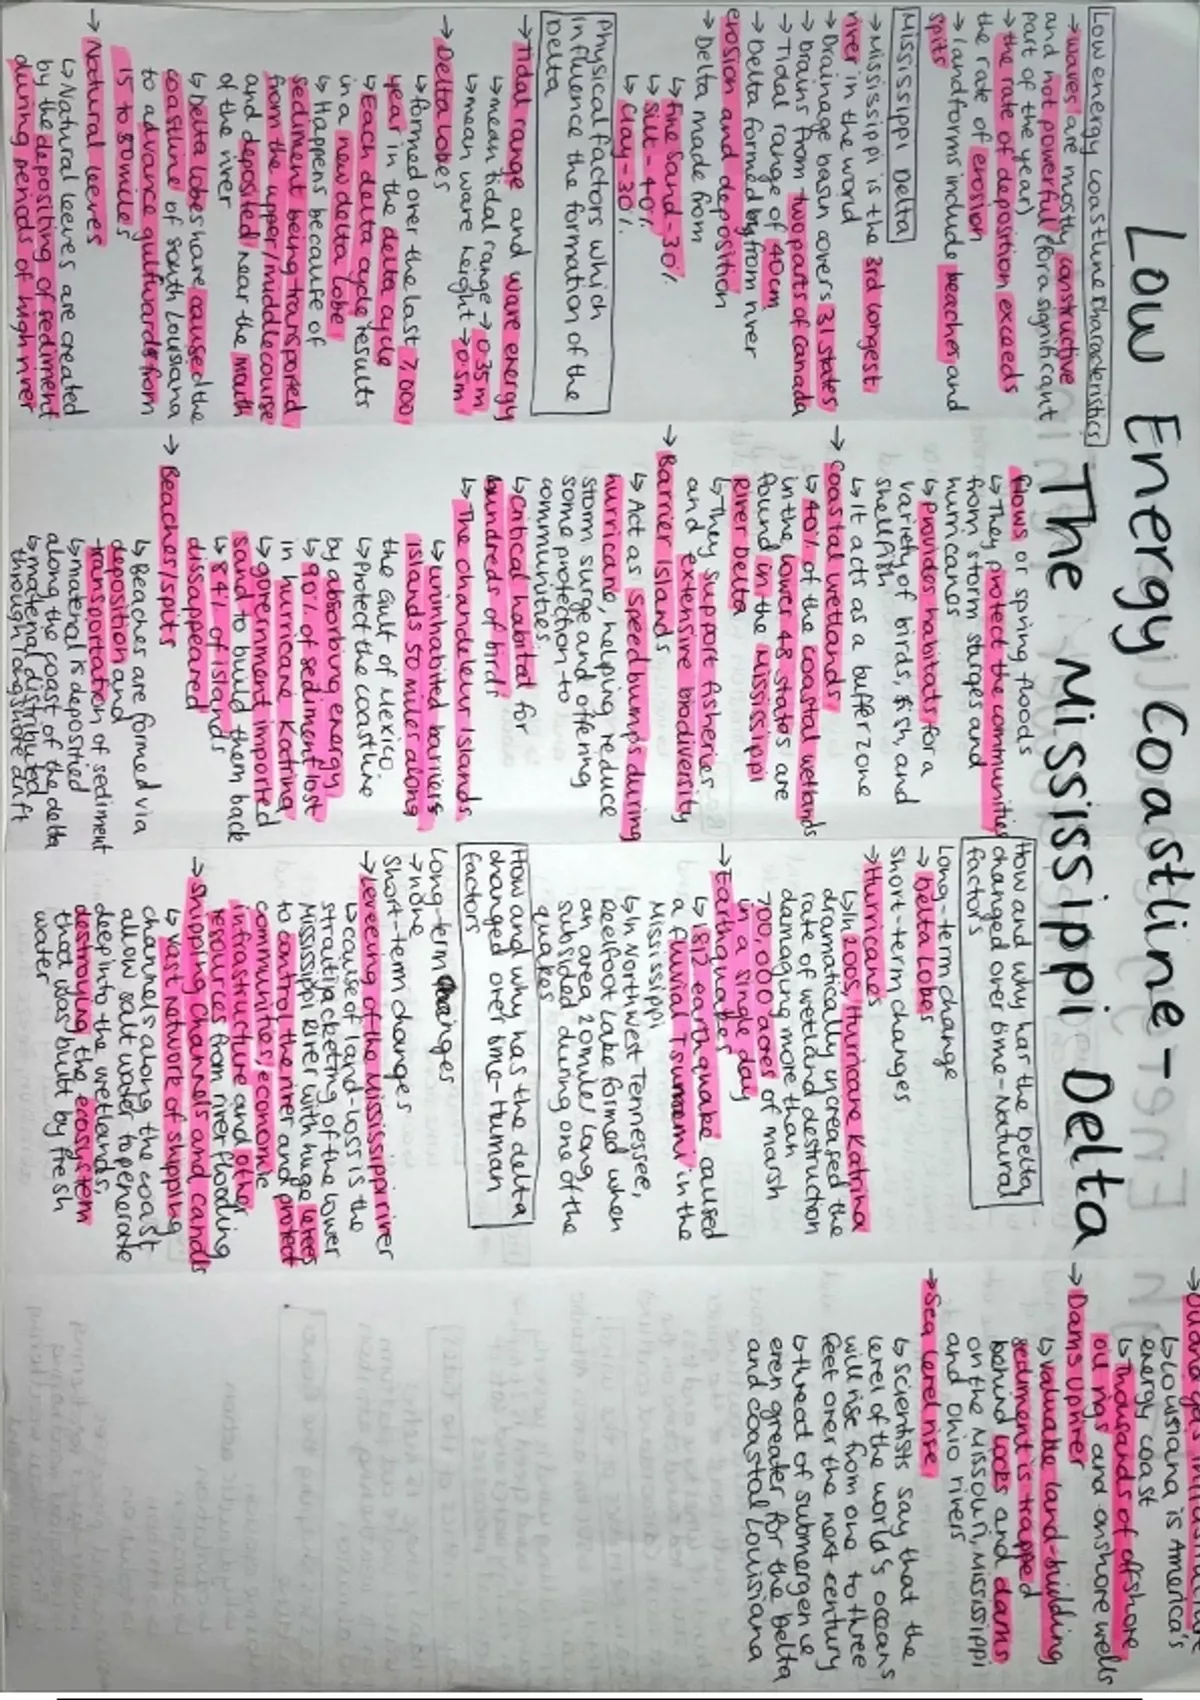 Low Energy Coastline -
The Mississippi Delta
Low energy coastline characteristics
→ waves are mostly constructive
and not powerful (for a significant
part of the year)
→ the rate of deposition exceeds
the rate of erosion
→ landforms include beaches and
spits
Mississippi Delta
→ Mississippi is the 3rd longest
river in the world
→ Drainage basin covers 31 states
→ Drains from two parts of Canada
→ Tidal range of 40cm
→ Delta formed by from river
erosion and deposition
→ Delta made from
↳ Fine Sand - 30%
↳ Silt - 40%
↳ Clay - 30%
Physical factors which
influence the formation of the
Delta
→ Tidal range and wave energy
↳ mean tidal range → 0.35m
↳ mean wave height → 0.5m
→ Delta lobes
↳ formed over the last 7,000
year in the delta cycle
↳ Each delta cycle results
in a new delta lobe
↳ Happens because of
sediment being transported
from the upper/middle course
and deposited near the mouth
of the river
↳ Delta lobes have caused the
coastline of south Louisiana
to advance gulfwards from
15 to 80 miles
→ Natural leeves
↳ Natural leeves are created
by the depositing of sediment
during periods of high river
flows or spring floods
↳ They protect the communities
from storm surges and
hurricanes
↳ provides habitats for a
variety of birds, fish, and
shellfish
↳ It acts as a buffer zone
→ Coastal wetlands
↳ 40% of the coastal wetlands
in the lower 48 states are
found in the Mississippi
River Delta
↳ They support fisheries
and extensive biodiversity
→ Barrier Islands
↳ Act as speed bumps during
hurricane, helping reduce
storm surge and offering
some protection to
communities
↳ critical habitat for
hundreds of birds
↳ The Chandeleur Islands
↳ uninhabited barriers
islands 50 miles along
the Gulf of Mexico
↳ Protect the coastline
by absorbing energy
↳ 90% of sediment lost
in hurricane Katrina
↳ government imported
sand to build them back
↳ 84% of islands
disappeared
→ Beaches/spits
↳ Beaches are formed via
deposition and
transportation of sediment
↳ material is deposited
along the coast of the delta
↳ material distributed
through longshore drift
How and why has the delta
changed over time - Natural
factors
Long-term change
→ Delta Lobes
Short-term changes
→ Hurricanes
↳ In 2005, Hurricane Katrina
dramatically increased the
rate of wetland destruction
damaging more than
700,000 acres of marsh
in a single day
→ Earthquakes
↳ 1812 earthquake caused
a fluvial Tsunami in the
Mississippi
↳ In Northwest Tennessee,
Reelfoot Lake formed when
an area 20 miles long
subsided during one of the
quakes
How and why has the delta
changed over time - Human
factors
Long-term changes
→ none
Short-term changes
→ Leveeing of the Mississippi river
↳ cause of land-loss is the
straitjacketing of the lower
Mississippi River with huge levees
to control the river and protect
communities, economic
infrastructure and other
resources from river flooding
→ Shipping Channels and canals
↳ vast network of shipping
channels along the coast
allow salt water to penerate
deep into the wetlands,
destroying the ecosystem
that was built by fresh
water
↳ Louisiana is America's
energy coast
↳ Thousands of offshore
oil rigs and onshore wells
→ Dams Upriver
↳ valuable land-building
sediment is trapped
behind locks and dams
on the Missouri, Mississippi
and Ohio rivers
→ Sea level rise
↳ Scientists say that the
level of the world's oceans
will rise from one to three
feet over the next century
↳ threat of submergence
even greater for the Delta
and coastal Louisiana